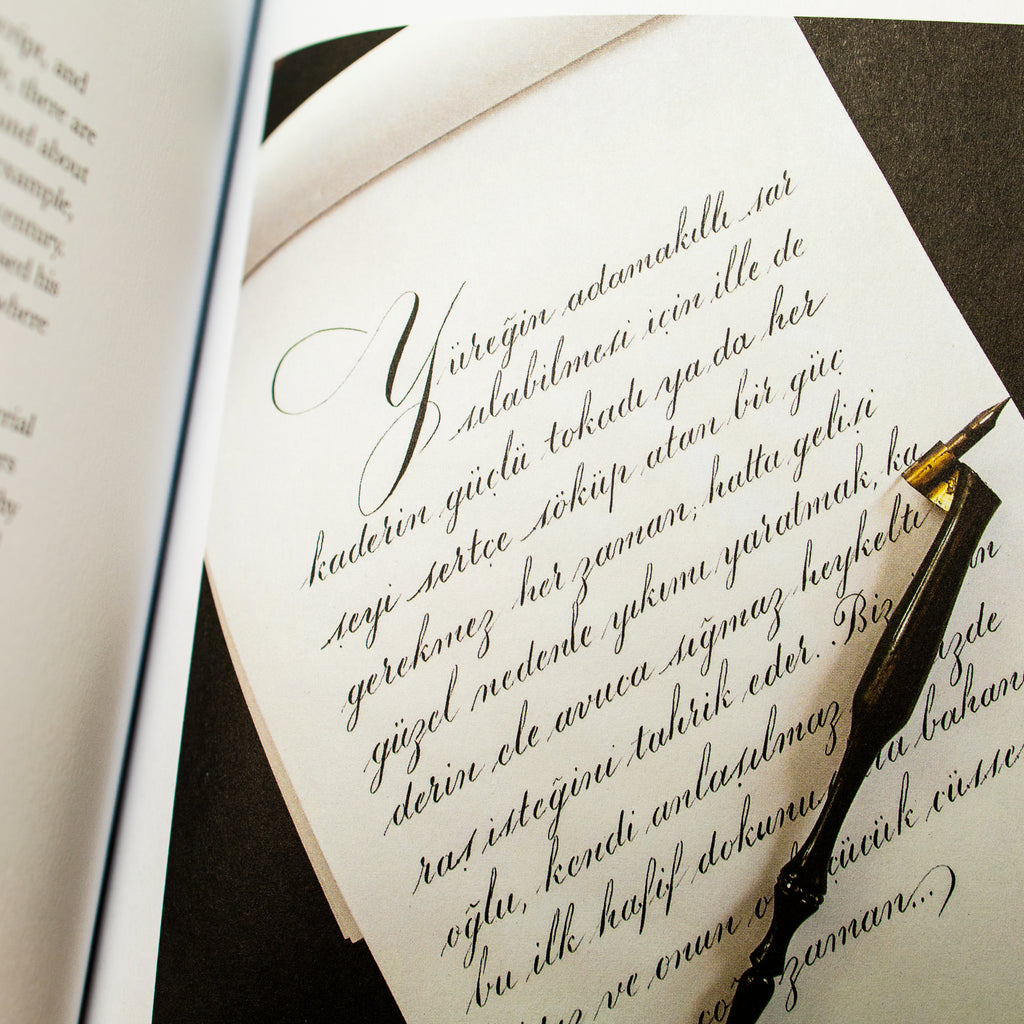 and
there are
and about
example,
century,
his
where
by
Yüreğin adamakıllı sar
sılabilmesi için ille de
kaderin güçlü tokadı ya da her
şeyi sertçe söküp atan bir güç
gerekmez her zaman; hatta gelişi
güzel nedenle yıkımı yaratmak, ka
derin ele avuca sığmaz heykeltı
raş isteğini tahrik eder. Biz
oğlu, kendi anlaşılmaz izde
bu ilk hafif dokunuş bahan
ve onun küçücük cüsse
zaman...)